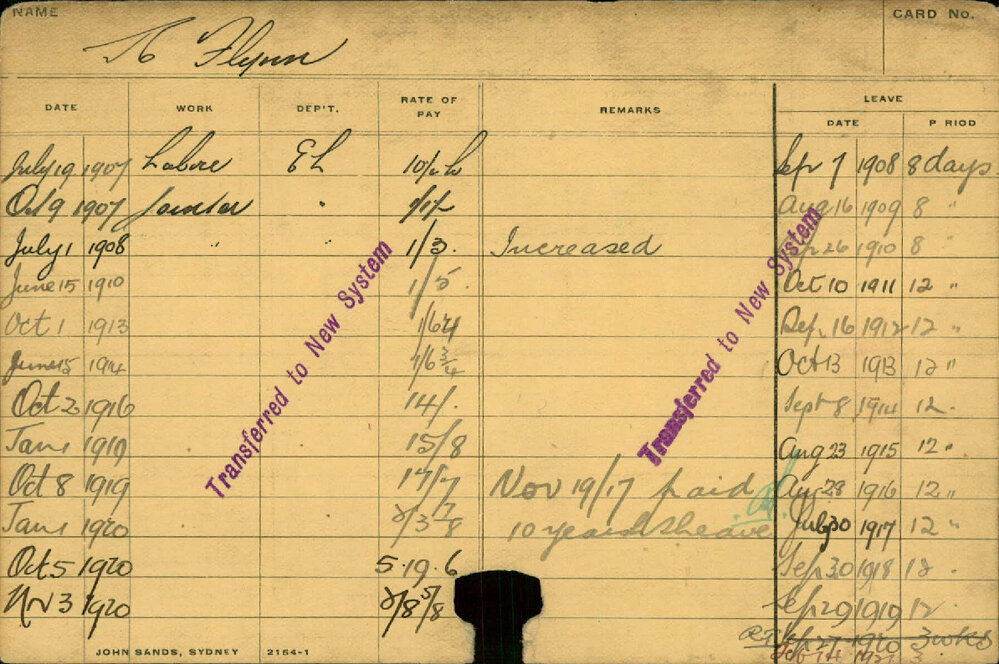 NAME
CARD No.
Flynn
DATE WORK DEP'T. RATE OF PAY REMARKS LEAVE
DATE P RIOD
July 19 1907 Labore EL Sep 7 1908 8 days
Oct 9 1907 " 1/1½ Aug 16 1909 8 "
July 1 1908 " " 1/3. Increased 26 1910 8 "
June 15 1910 1/5. Oct 10 1911 12 "
Oct 1 1913 Sep. 16 1912 12 "
June 15 1914 1/6¾ Oct 13 1913 12 "
Oct 2 1916 14/. Sept 8 1914 12.
Jan 1 1919 15/8 Aug 23 1915 12 "
Oct 8 1919 17/7 Nov 19/17 paid Aug 28 1916 12 "
Jan 1 1920 2/3⅞ 10 years July 30 1917 12 "
Oct 5 1920 5.19.6 Sep 30 1918 12.
Nov 3 1920 2/8⅝ Sep 29 1919 12
Sep 27 1920 3 wks
Transferred to New System
Transferred to New System
JOHN SANDS, SYDNEY 2154-1